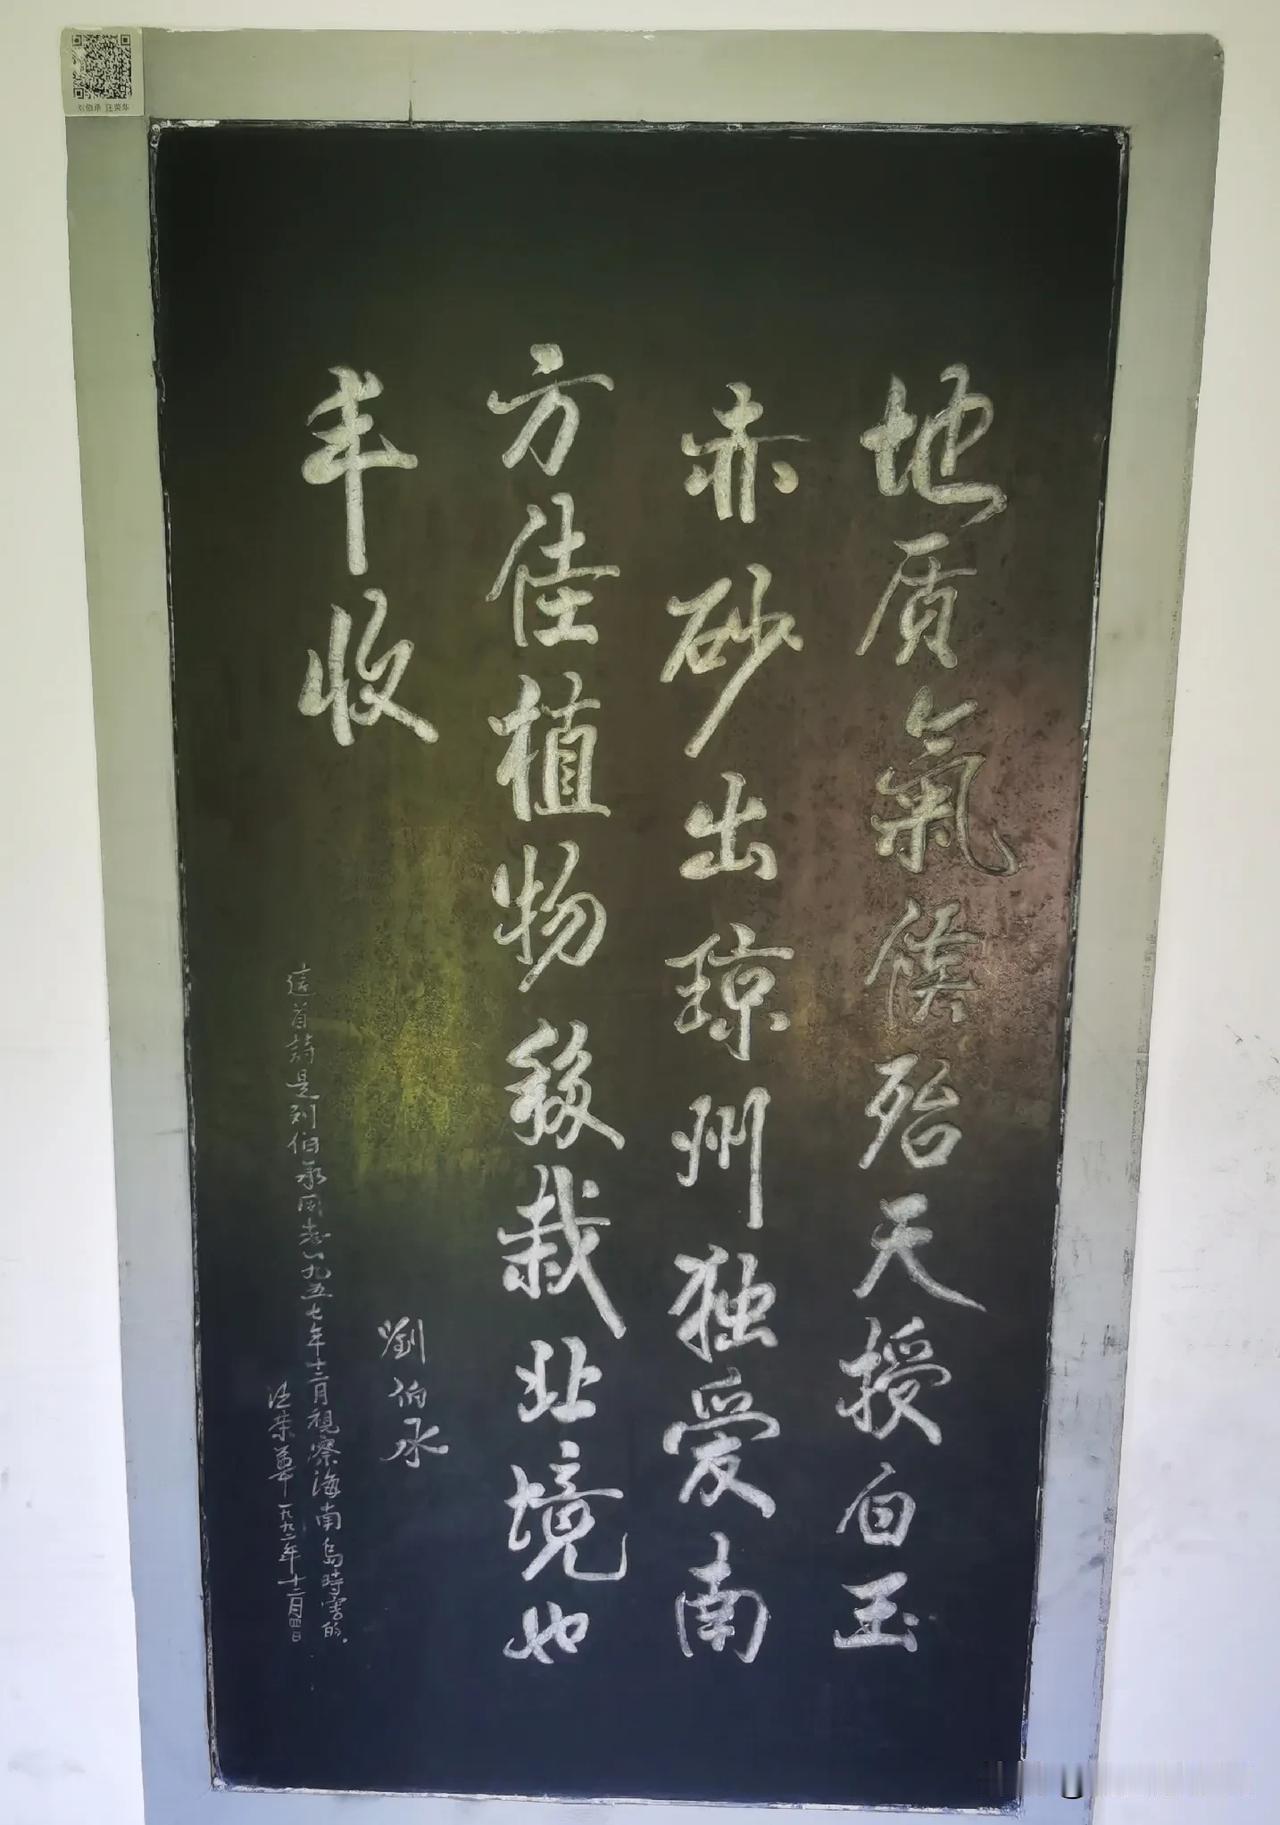 地质氣候殆天授白玉
赤砂出琼州独爱南
方佳植物移栽北境也
丰收
劉伯承
這首詩是刘伯承同志一九五七年十二月視察海南島時寫的.
汪荣華 一九九二年十二月四日
刘伯承 汪荣华